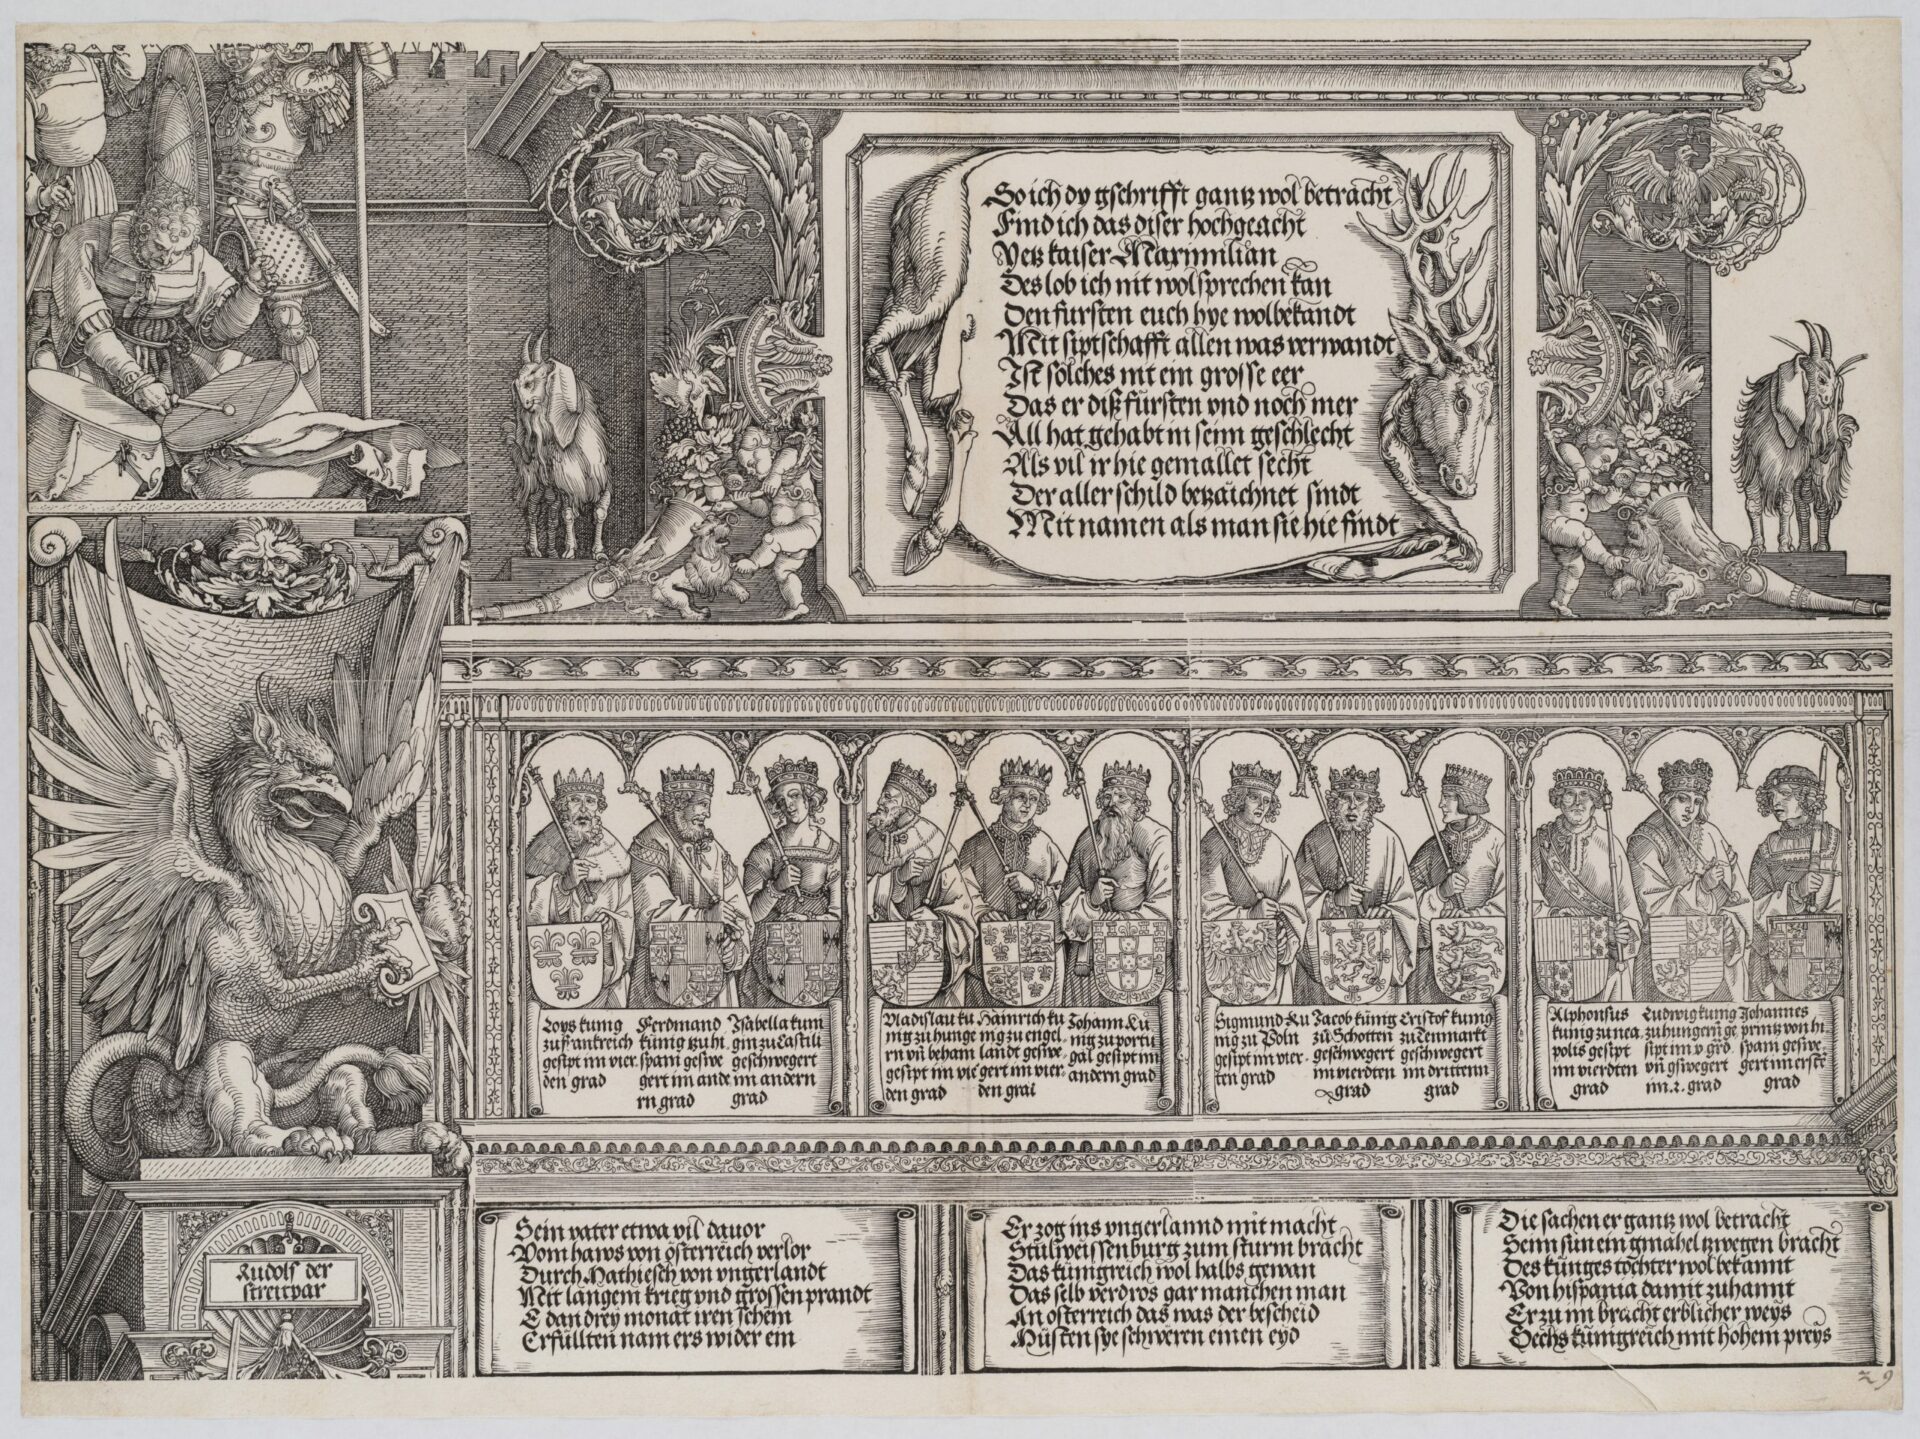 So ich dy gschrifft gantz wol betracht
Find ich das diser hochgeacht
Yetz kaiser Maxmnilian
Des lob ich nit wolsprechen kan
Den fursten euch hye wolbekandt
Mit siptschafft allen was verwandt
Ist solches nit ein grosse eer
Das er diß fursten vnd noch mer
All hat gehabt in seim geschlecht
Als vil ir hie gemallet secht
Der aller schild betzaichnet sindt
Mit namen als man sie hie findt
Loys kunig
zu frankreich
gesipt im vier
den grad
Ferdinand
kunig zu hi
spani geswe
gert im ande
rn grad
Ysabella kuni
gin zu Castili
geschwegert
im andern
grad
Vladislau ku
nig zu hunge
rn vn beham
gesipt im vie
den grad
Hainrich ku
nig zu engel
landt geswe
gert im vier
den grad
Johann ku
nig zu portu
gal gesipt im
andern grad
Sigmund Ku
nig zu Poln
gesipt im vier
ten grad
Jacob kunig
zu Schotten
geschwegert
im vierdten
grad
Cristof kunig
zu Tenmarkt
geschwegert
im drittenn
grad
Alphonsus
kunig zu nea
polis gesipt
im vierdten
grad
Ludwig kunig
zu hungern ge
sipt im v grd
vn gswegert
im .2. grad
Johannes
printz von hi
spani geswe
gert im erste
grad
Rudolf der
streitpar
Sein vater etwa vil davor
Vom haws von osterreich verlor
Durch Mathiesch von vngerlandt
Mit langem krieg vnd grossen prandt
E dan drey monat iren schein
Erfullten nam ers wider ein
Er zog ins vngerlannd mit macht
Stulweissenburg zum sturm bracht
Das kunigreich wol halbs gewan
Das selb verdros gar manchen man
An osterreich das was der bescheid
Musten sye schweren einen eyd
Die sachen er gantz wol betracht
Seim sun ein gmahel tzwegen bracht
Des kunges tochter wol bekannt
Von hispania damit zuhannt
Er zu im bracht erblicher weys
Sechs kunigreich mit hohem preys
29